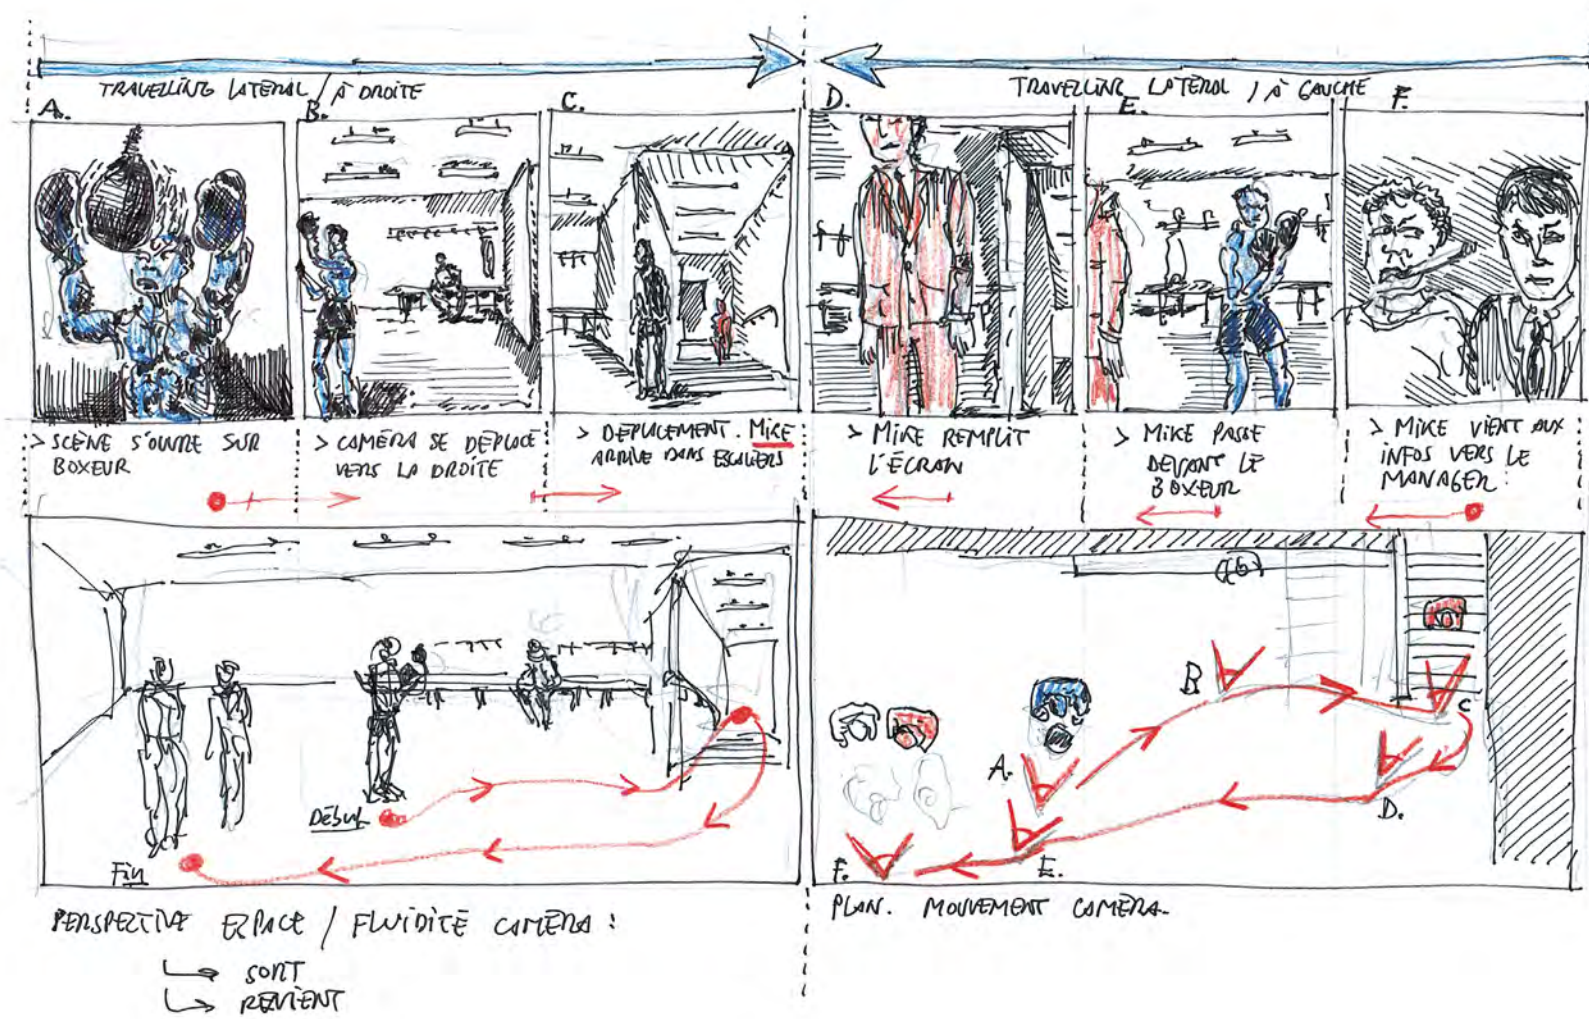 TRAVELLING LATÉRAL / À DROITE
TRAVELLING LATÉRAL / À GAUCHE
A.
B.
C.
D.
E.
F.
> SCÈNE S'OUVRE SUR
BOXEUR
> CAMÉRA SE DÉPLACE
VERS LA DROITE
> DÉPLACEMENT. MIKE
ARRIVE DANS ESCALIERS
> MIKE REMPLIT
L'ÉCRAN
> MIKE PASSE
DEVANT LE
BOXEUR
> MIKE VIENT AUX
INFOS VERS LE
MANAGER.
DÉBUT
FIN
B
C
A.
D.
F.
E.
PERSPECTIVE ESPACE / FLUIDITÉ CAMÉRA :
SORT
REVIENT
PLAN. MOUVEMENT CAMÉRA.